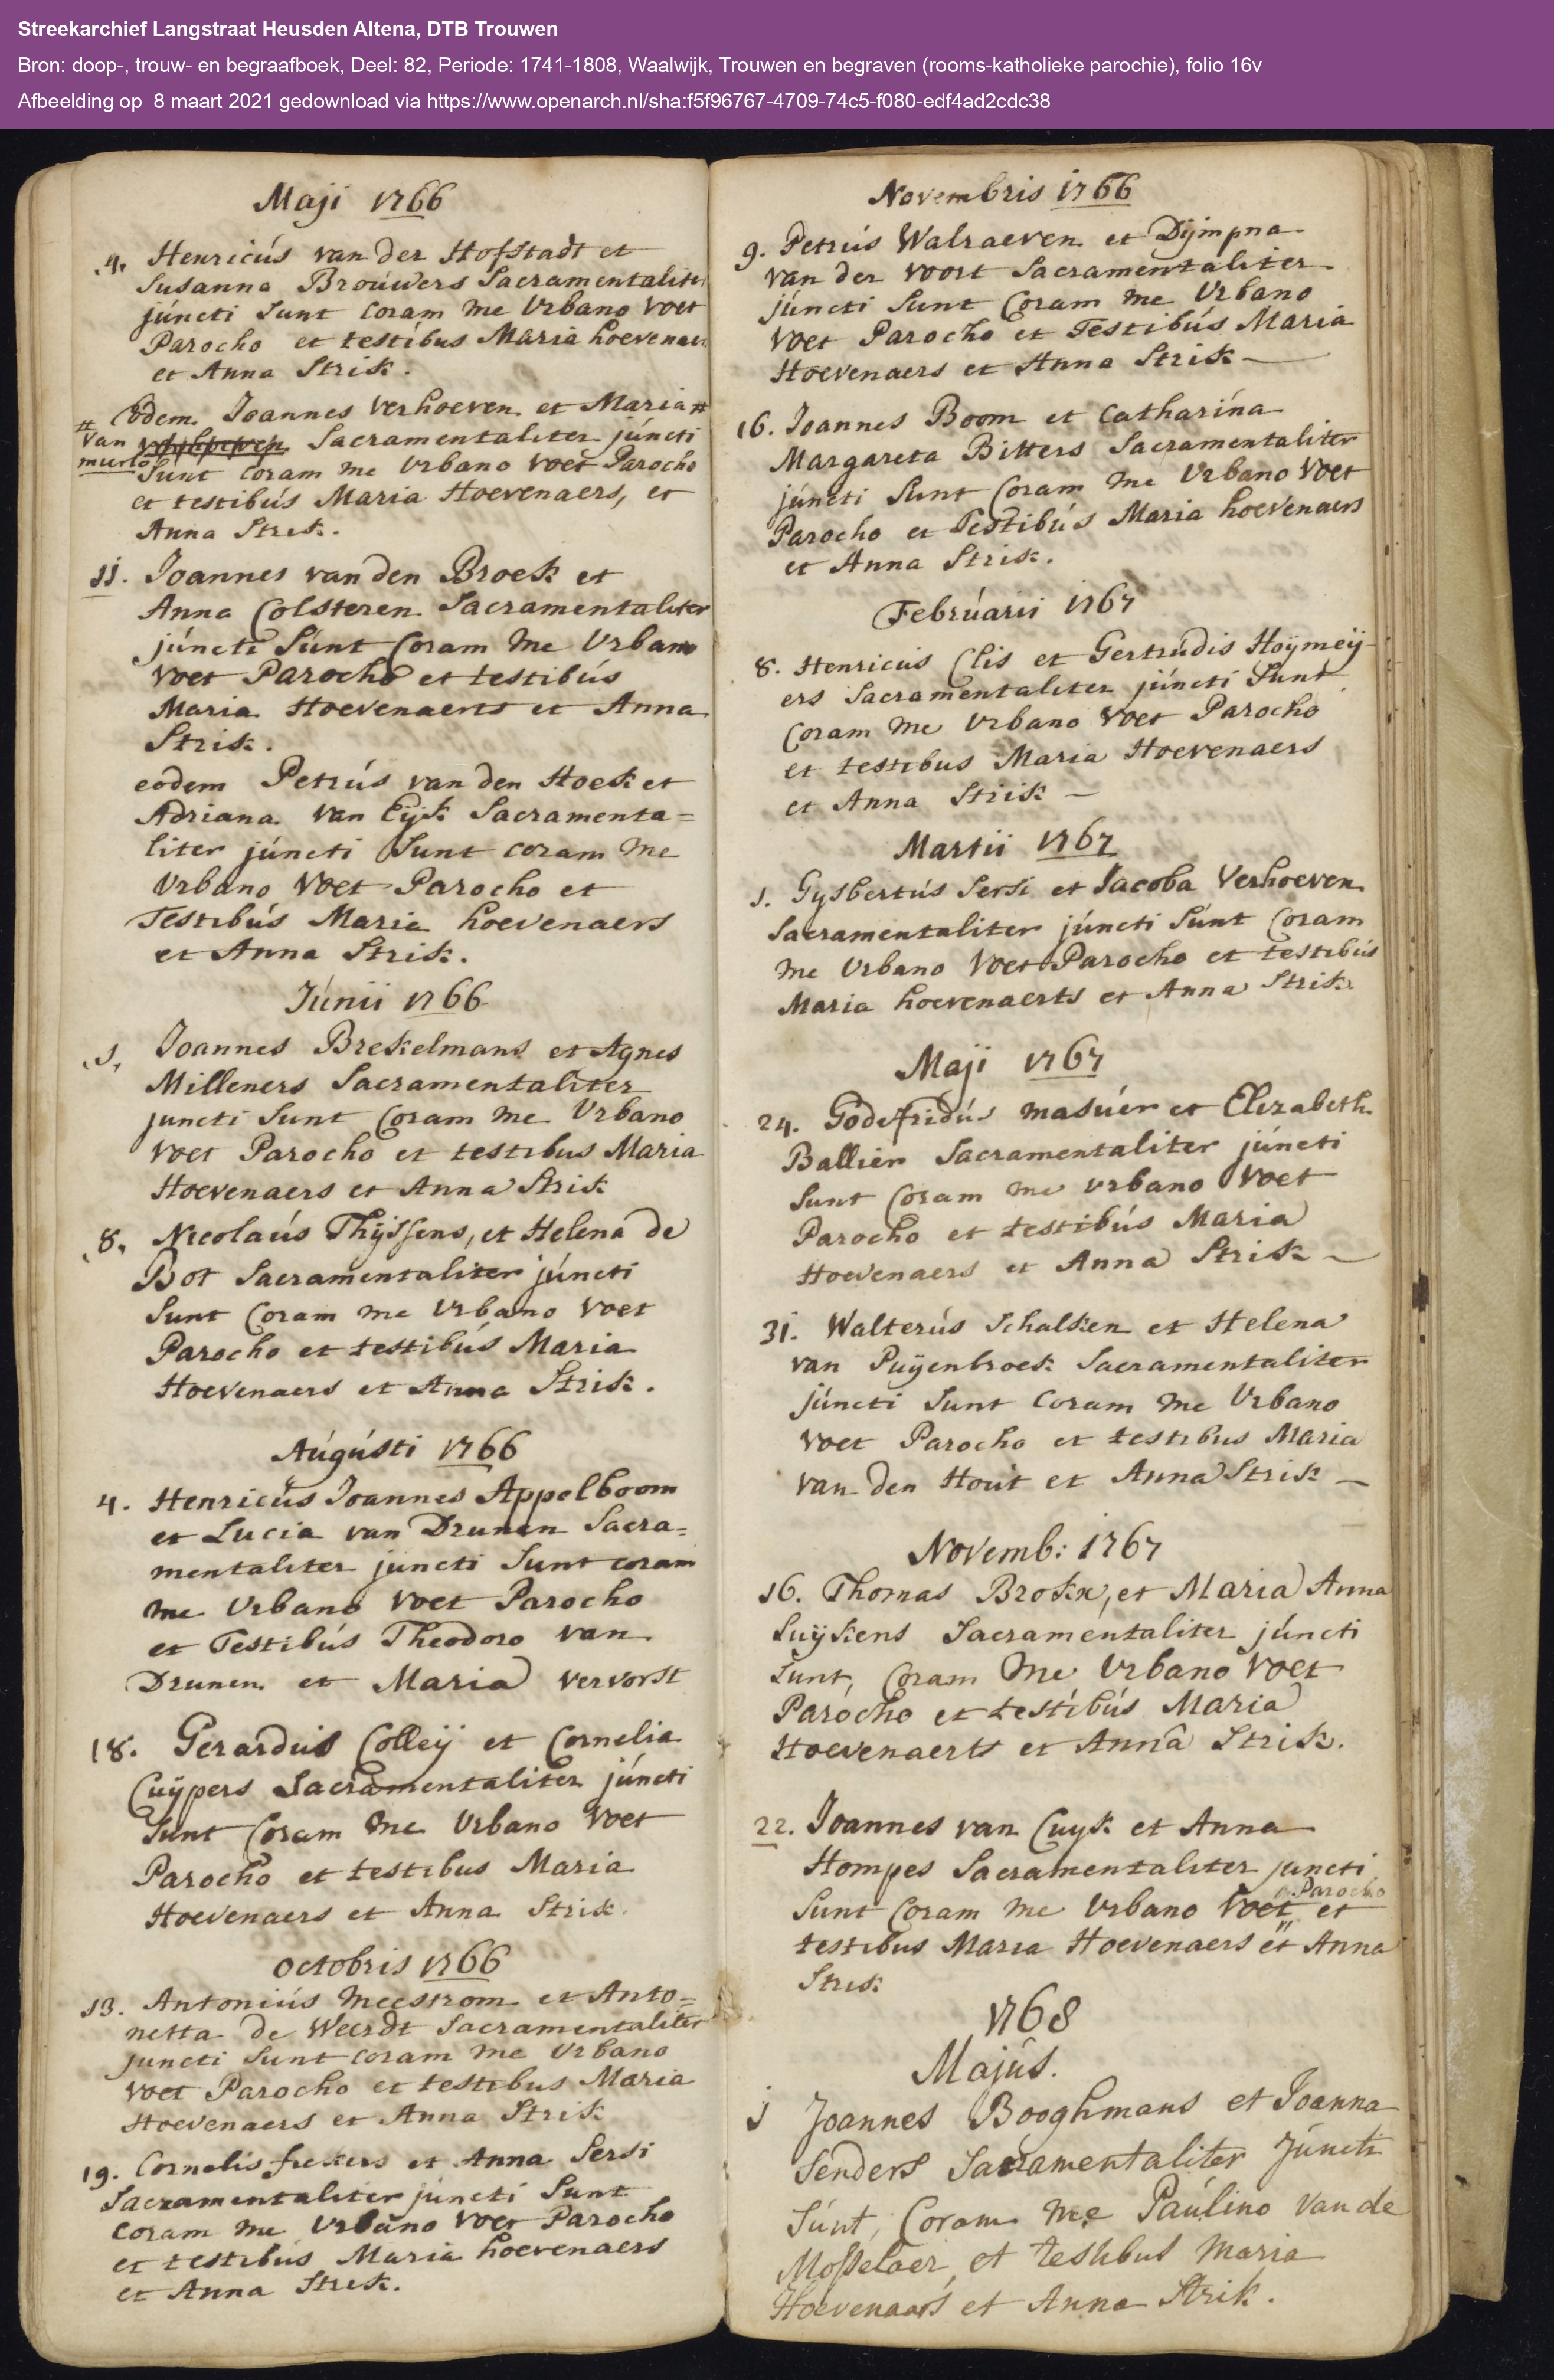 Streekarchief Langstraat Heusden Altena, DTB Trouwen
Bron: doop-, trouw- en begraafboek, Deel: 82, Periode: 1741-1808, Waalwijk, Trouwen en begraven (rooms-katholieke parochie), folio 16v
Afbeelding op 8 maart 2021 gedownload via https://www.openarch.nl/sha:f5f96767-4709-74c5-f080-edf4ad2cdc38
Maji 1766
4. Henricús van der Hofstadt et
Susanna Broúwers Sacramentaliter
júncti Sunt Coram me Urbano Voet
Parocho et testibus Maria hoevenaers
et Anna Strik.
Eodem Joannes Verhoeven et Maria #
# van Sacramentaliter júncti
mierlo Sunt Coram me Urbano Voet Parocho
et testibús Maria Hoevenaers, et
Anna Strik.
11. Joannes van den Broek et
Anna Colsteren Sacramentaliter
júncti Súnt Coram me Urbano
Voet Parocho et testibús
Maria Hoevenaerts et Anna
Strik.
eodem Petrús van den Hoek et
Adriana van Eijk Sacramenta=
liter júncti Sunt coram me
Urbano Voet Parocho et
Testibús Maria hoevenaers
et Anna Strik.
Júnii 1766
1. Joannes Brekelmans et Agnes
Milleners Sacramentaliter
juncti Sunt Coram me Urbano
Voet Parocho et testibus Maria
Hoevenaers et Anna Strik
8. Nicolaús Thijssens, et Helena de
Bot Sacramentaliter júncti
Sunt Coram me Urbano Voet
Parocho et testibús Maria
Hoevenaers et Anna Strik.
Aúgústi 1766
4. Henricús Joannes Appelboom
et Lucia van Drunen Sacra=
mentaliter juncti Sunt coram
me Urbano Voet Parocho
et Testibús Theodoro van
Drunen et Maria vervorst
18. Gerardus Colleij et Cornelia
Cuijpers Sacramentaliter júncti
Sunt Coram me Urbano Voet
Parocho et testibus Maria
Hoevenaers et Anna Strik.
octobris 1766
13. Antoniús Meestrom et Anto=
netta de Weerdt Sacramentaliter
juncti Sunt coram me Urbano
Voet Parocho et testibus Maria
Hoevenaers et Anna Strik
19. Cornelis et Anna Sersi
Sacramentaliter júncti Sunt
Coram me Urbano Voet Parocho
et testibus Maria hoevenaers
et Anna Strik.
Novembris 1766
9. Petrús Walraeven et Dijmpna
van der Voort Sacramentaliter
júncti Sunt Coram me Urbano
Voet Parocho et Testibús Maria
Hoevenaers et Anna Strik —
16. Joannes Boom et Catharina
Margareta Bitters Sacramentaliter
júncti Sunt Coram me Urbano Voet
Parocho et Testibús Maria hoevenaers
et Anna Strik.
Febrúarii 1767
8. Henricús Clis et Gertrúdis Hoijmeij
ers Sacramentaliter júncti Sunt
Coram me Urbano Voet Parocho
et testibus Maria Hoevenaers
et Anna Strik —
Martii 1767
1. Gysbertús Sersi et Jacoba Verhoeven
Sacramentaliter júncti Súnt Coram
me Urbano Voet Parocho et testibús
Maria hoevenaerts et Anna Strik
Maji 1767
24. Godefridús masúer et Elizabeth
Ballier Sacramentaliter júncti
Sunt Coram me Urbano Voet
Parocho et testibús Maria
Hoevenaers et Anna Strik —
31. Walterús Schalken et Helena
van Puijenbroek Sacramentaliter
júncti Sunt Coram me Urbano
Voet Parocho et testibus Maria
van den Hout et Anna Strik —
Novemb: 1767
16. Thomas Brokx, et Maria Anna
Suijkens Sacramentaliter júncti
Sunt, Coram me Urbano Voet
Parocho et testibús Maria
Hoevenaerts et Anna Strik.
22. Joannes van Cuyk et Anna
Hompes Sacramentaliter juncti
Sunt Coram me Urbano Voet Parocho et
testibus Maria Hoevenaers et Anna
Strik
1768
Majús.
j Joannes Booghmans et Joanna
Senders Sacramentaliter Júncti
Súnt, Coram me Paúlino Van de
Mosselaer, et testibus Maria
Hoevenaars et Anna Strik.